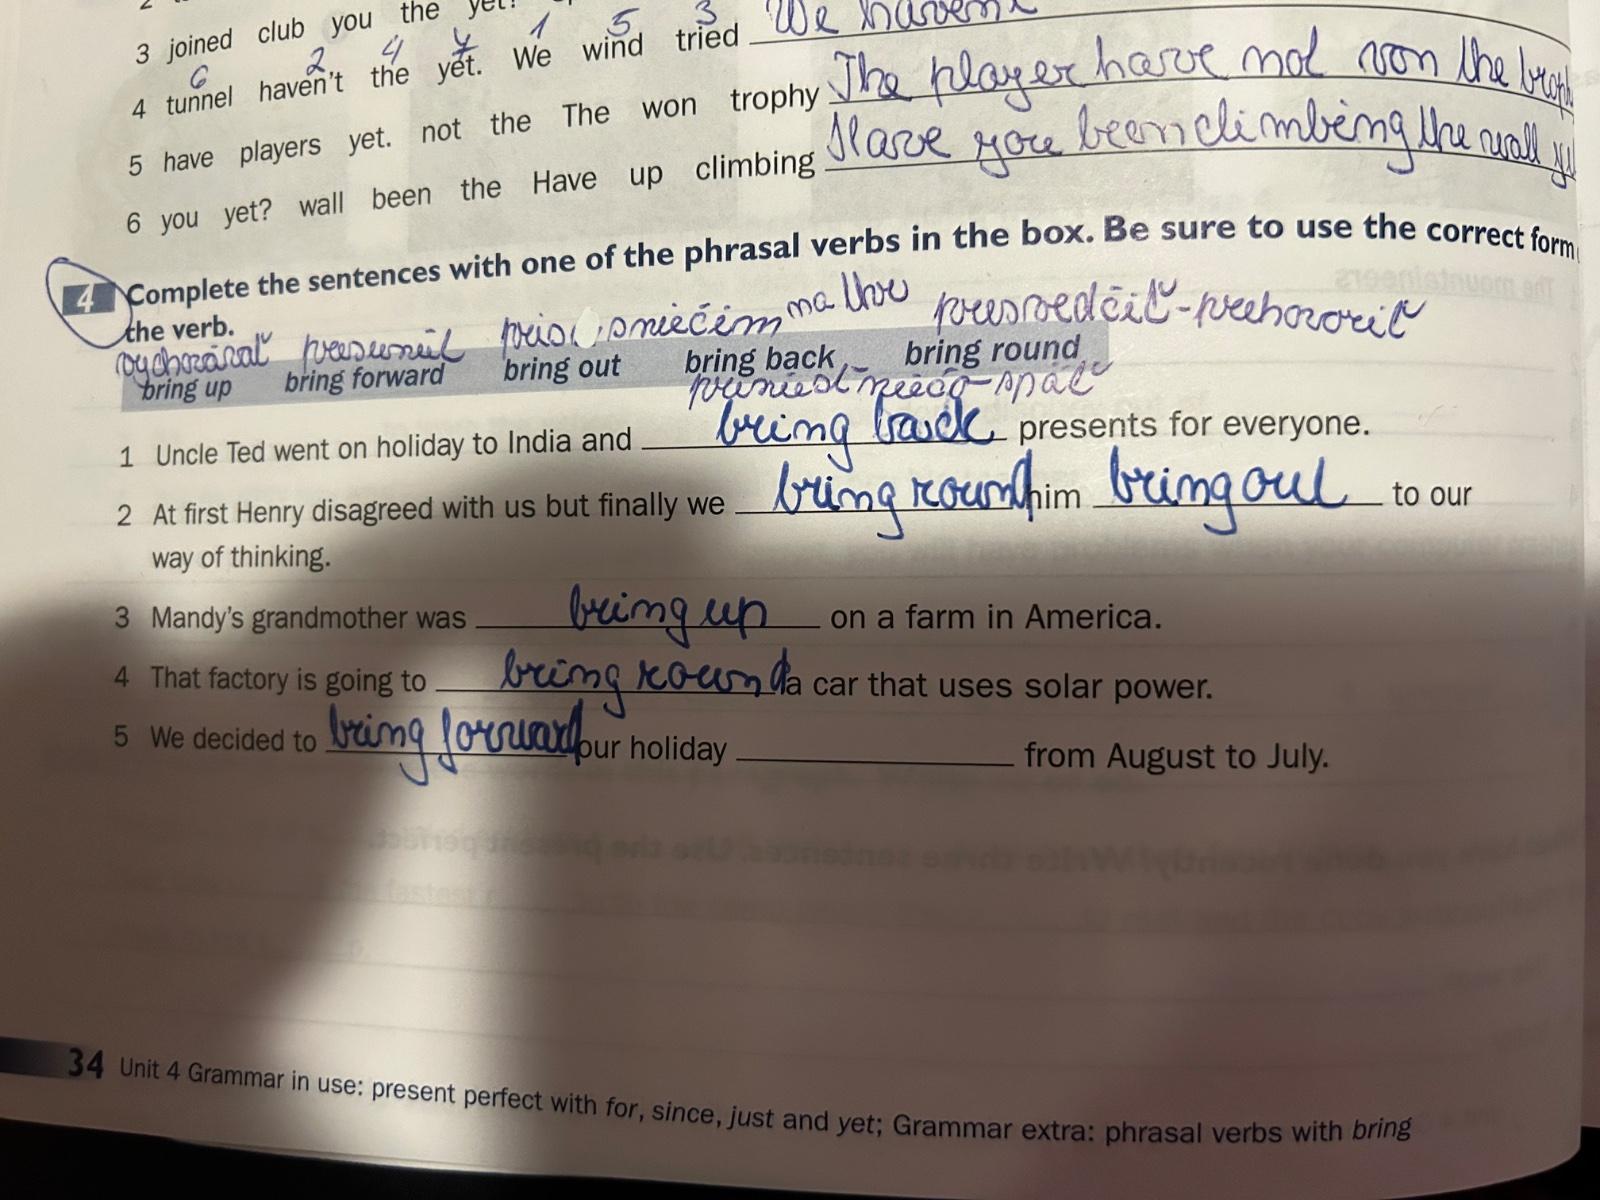 3 joined club you the yet?
6 2 4 7 1 5 3 We haven't
4 tunnel haven't the yet. We wind tried
The player have not von the troph
5 have players yet. not the The won trophy
Have you been climbing the wall
6 you yet? wall been the Have up climbing
4 Complete the sentences with one of the phrasal verbs in the box. Be sure to use the correct form
the verb.
vychovávať presunúť niečím na trh presvedčiť-prehovoriť
bring up bring forward bring out bring back bring round
priniesť niečo-späť
1 Uncle Ted went on holiday to India and bring back presents for everyone.
2 At first Henry disagreed with us but finally we bring round him bring out to our
way of thinking.
3 Mandy's grandmother was bring up on a farm in America.
4 That factory is going to bring round a car that uses solar power.
5 We decided to bring forward our holiday from August to July.
34 Unit 4 Grammar in use: present perfect with for, since, just and yet; Grammar extra: phrasal verbs with bring